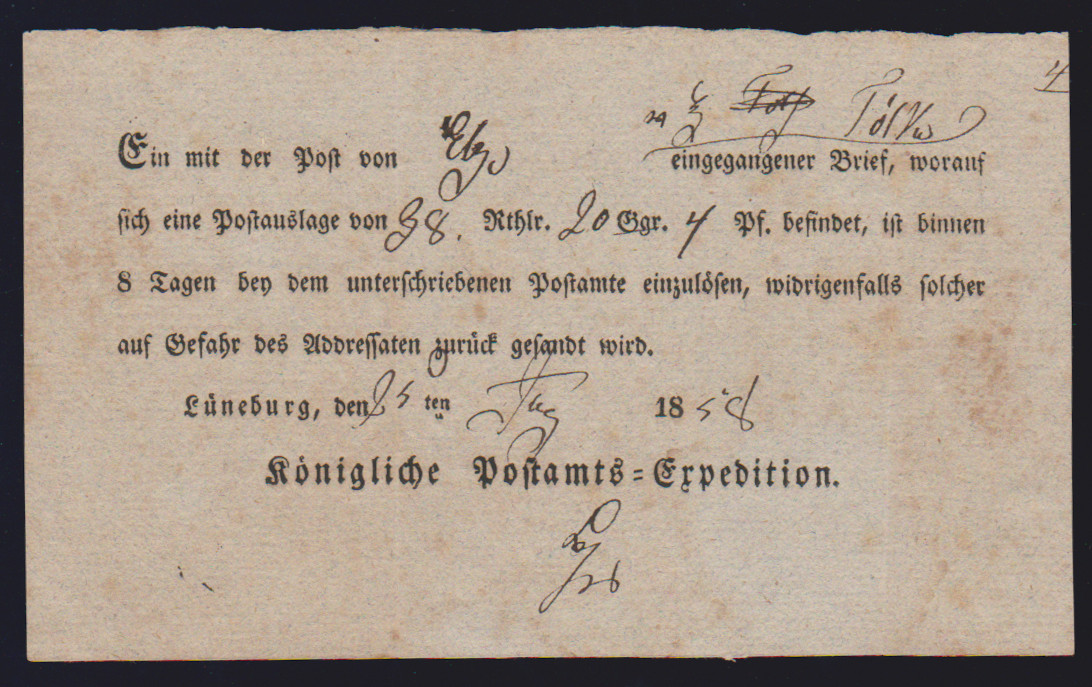 4
Ein mit der Post von eingegangener Brief, worauf
sich eine Postauslage von 38. Rthlr. 20 Ggr. 4 Pf. befindet, ist binnen
8 Tagen bey dem unterschriebenen Postamte einzulösen, widrigenfalls solcher
auf Gefahr des Addressaten zurück gesandt wird.
Lüneburg, den 25 ten Aug 1858
Königliche Postamts-Expedition.